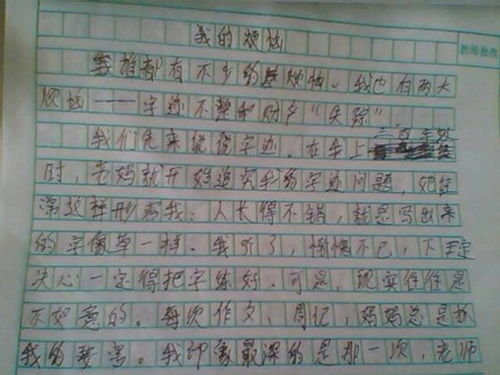 我的烦恼
我谁都有不少的烦恼。我也有两大
烦恼——字迹不整和财产“失踪”
我们先来说说字迹。在我上三年级
时，老妈就开始追究我的字迹问题，她经
常这样形容我：人长得不错，就是写出来
的字像草一样。我听了，惭愧不已，下定
决心一定得把字练好。可是，现实往往是
不如意的。每次作文，周记，妈妈总是
我的。我印象最深的是那一次，老师
教师批改